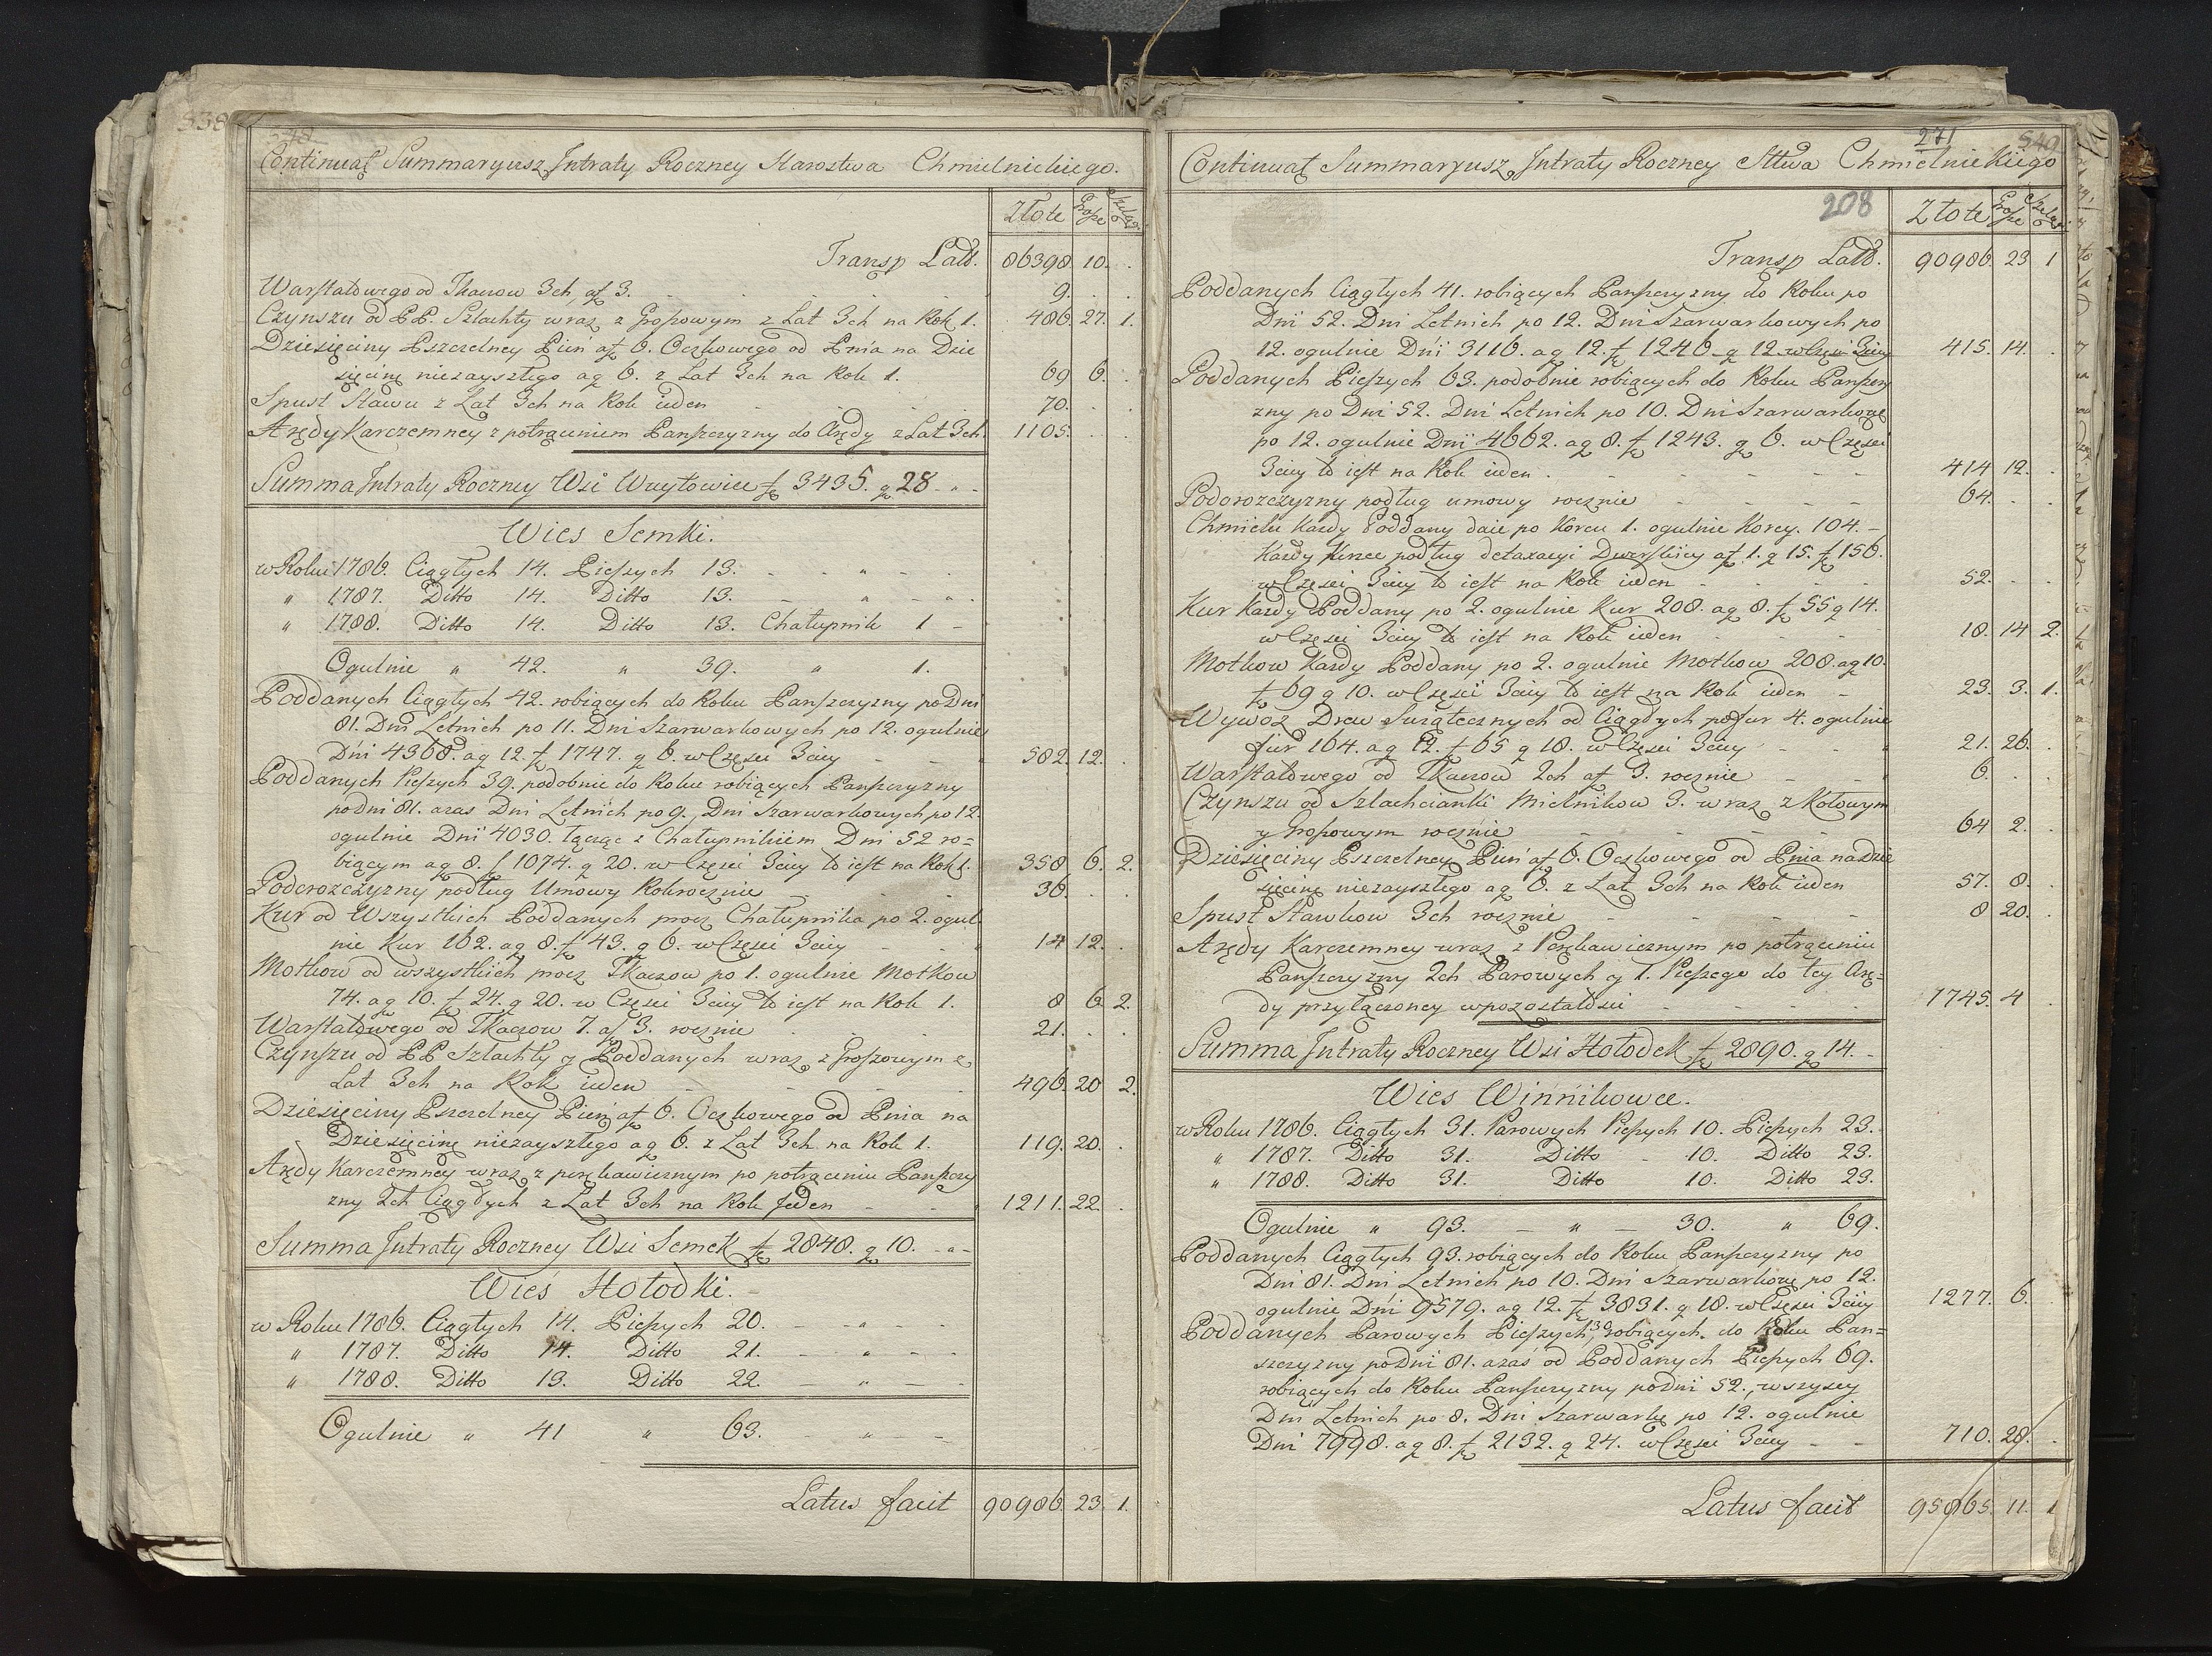 538
Continuat Summaryusz Intraty Roczney Starostwa Chmielnickiego.
Złote Grosze Szelągi
Transp Lads. 86398. 10.
Warsztatowego od Tkaczow 3ch af 3. 9.
Czynszu od PP. Szlachty wraz z Groszowym z Lat 3ch na Rok 1. 486. 27. 1.
Dziesięciny Pszczelney Pień af 6. Oczkowego od Pnia na Dzie
sięcinę niezayszłego ag 6. z Lat 3ch na Rok 1. 69 6.
Spust Stawu z Lat 3ch na Rok ieden 70.
Arędy Karczemney z potrąceniem Panszczyzny do Arędy z Lat 3ch 1105.
Summa Intraty Roczney Wsi Wuytowiec f 3435. g 28
Wies Semki.
w Roku 1786. Ciągłych 14. Pieszych 13.
" 1787. Ditto 14. Ditto 13.
" 1788. Ditto 14. Ditto 13. Chałupnik 1
Ogulnie " 42. " 39. " 1.
Poddanych Ciągłych 42. robiących do Roku Panszczyzny po Dni
81. Dni Letnich po 11. Dni Szarwarkowych po 12. ogulnie
Dni 4368. ag 12. f 1747. g 6. w Częsci 3ciey 582. 12.
Poddanych Pieszych 39. podobnie do Roku robiących Panszczyzny
po Dni 81. a zas Dni Letnich po 9., Dni Szarwarkowych po 12.
ogulnie Dni 4030. łącząc z Chałupnikiem Dni 52 ro=
biącym ag 8. f 1074. g 20. w Częsci 3ciey to iest na Rok 1. 358 6. 2.
Podorozczyzny podług Umowy Rokrocznie 36.
Kur od Wszystkich Poddanych procz Chałupnika po 2. ogul
nie Kur 162. ag 8. f 43. g 6. w Częsci 3ciey 14 12.
Motkow od wszystkich procz Tkaczow po 1. ogulnie Motkow
74. ag 10. f 24. g 20. w Częsci 3ciey to iest na Rok 1. 8 6 2.
Warsztatowego od Tkaczow 7. af 3. rocznie 21.
Czynszu od PP Szlachty y Poddanych wraz z Groszowym z
Lat 3ch na Rok ieden 496. 20 2.
Dziesięciny Pszczelney Pień af 6. Oczkowego od Pnia na
Dziesięcinę niezayszłego ag 6. z Lat 3ch na Rok 1. 119. 20.
Arędy Karczemney wraz z perekawicznym po potrąceniu Panszczy
zny 2ch Ciągłych z Lat 3ch na Rok Jeden 1211. 22.
Summa Intraty Roczney Wsi Semek f 2848. g 10.
Wieś Hołodki.
w Roku 1786. Ciągłych 14. Pieszych 20.
" 1787. Ditto 14. Ditto 21.
" 1788. Ditto 13. Ditto 22.
Ogulnie " 41 " 63.
Latus facit 90986. 23. 1.
271
540
Continuat Summaryusz Intraty Roczney Sttwa Chmielnickiego
208
Złote Grosze Szelągi
Transp Lads. 90986. 23 1
Poddanych Ciągłych 41. robiących Panszczyzny do Roku po
Dni 52. Dni Letnich po 12. Dni Szarwarkowych po
12. ogulnie Dni 3116. ag 12. f 1246 g 12 w Częsci 3ciey 415. 14.
Poddanych Pieszych 63. podobnie robiących do Roku Panszczy
zny po Dni 52. Dni Letnich po 10. Dni Szarwarkowe
po 12. ogulnie Dni 4662. ag 8. f 1243. g 6. w Częsci
3ciey to iest na Rok ieden 414 12.
Podorozczyzny podług umowy rocznie 64.
Chmielu każdy Poddany daie po Korcu 1. ogulnie Korcy. 104.
Każdy Korzec podług detaxacyi Dworskiey af 1. g 15. f 156.
w Częsci 3ciey to iest na Rok ieden 52.
Kur każdy Poddany po 2. ogulnie Kur 208. ag 8. f 55 g 14.
w Częsci 3ciey to iest na Rok ieden 18. 14 2.
Motkow każdy Poddany po 2. ogulnie Motkow 208. ag 10.
f 69 g 10. w Częsci 3ciey to iest na Rok ieden 23. 3. 1.
Wywoz Drew Swiątecznych od Ciągłych po fur 4. ogulnie
fur 164. ag 12. f 65 g 18. w Częsci 3ciey 21. 26.
Warsztatowego od Tkaczow 2ch af 3. rocznie 6.
Czynszu od Szlachcianki Mielnikow 3. wraz z Kołowym
y Groszowym rocznie 64 2.
Dziesięciny Pszczelney Pień af 6. Oczkowego od Pnia na Dzie
sięcinę niezayszłego ag 6. z Lat 3ch na Rok ieden 57. 8.
Spust Stawkow 3ch rocznie 8 20.
Arędy Karczemney wraz z Perekawicznym po potrąceniu
Panszczyzny 2ch Parowych y 1. Pieszego do tey Arę=
dy przyłączoney w pozostałości 1745. 4
Summa Intraty Roczney Wsi Hołodek f 2890. g 14.
Wies Winnikowce.
w Roku 1786. Ciągłych 31. Parowych Pieszych 10. Pieszych 23.
" 1787. Ditto 31. Ditto 10. Ditto 23.
" 1788. Ditto 31. Ditto 10. Ditto 23.
Ogulnie " 93. " 30. " 69.
Poddanych Ciągłych 93. robiących do Roku Panszczyzny po
Dni 81. Dni Letnich po 10. Dni Szarwarkowe po 12.
ogulnie Dni 9579. ag 12. f 3831. g 18. w Częsci 3ciey 1277. 6.
Poddanych Parowych Pieszych 30 robiących do Roku Pan=
szczyzny po Dni 81. a zaś od Poddanych Pieszych 69.
robiących do Roku Panszczyzny po Dni 52., wszyscy
Dni Letnich po 8. Dni Szarwarkę po 12. ogulnie
Dni 7998. ag 8. f 2132. g 24. w Częsci 3ciey 710. 28.
Latus facit 95865. 11. 1